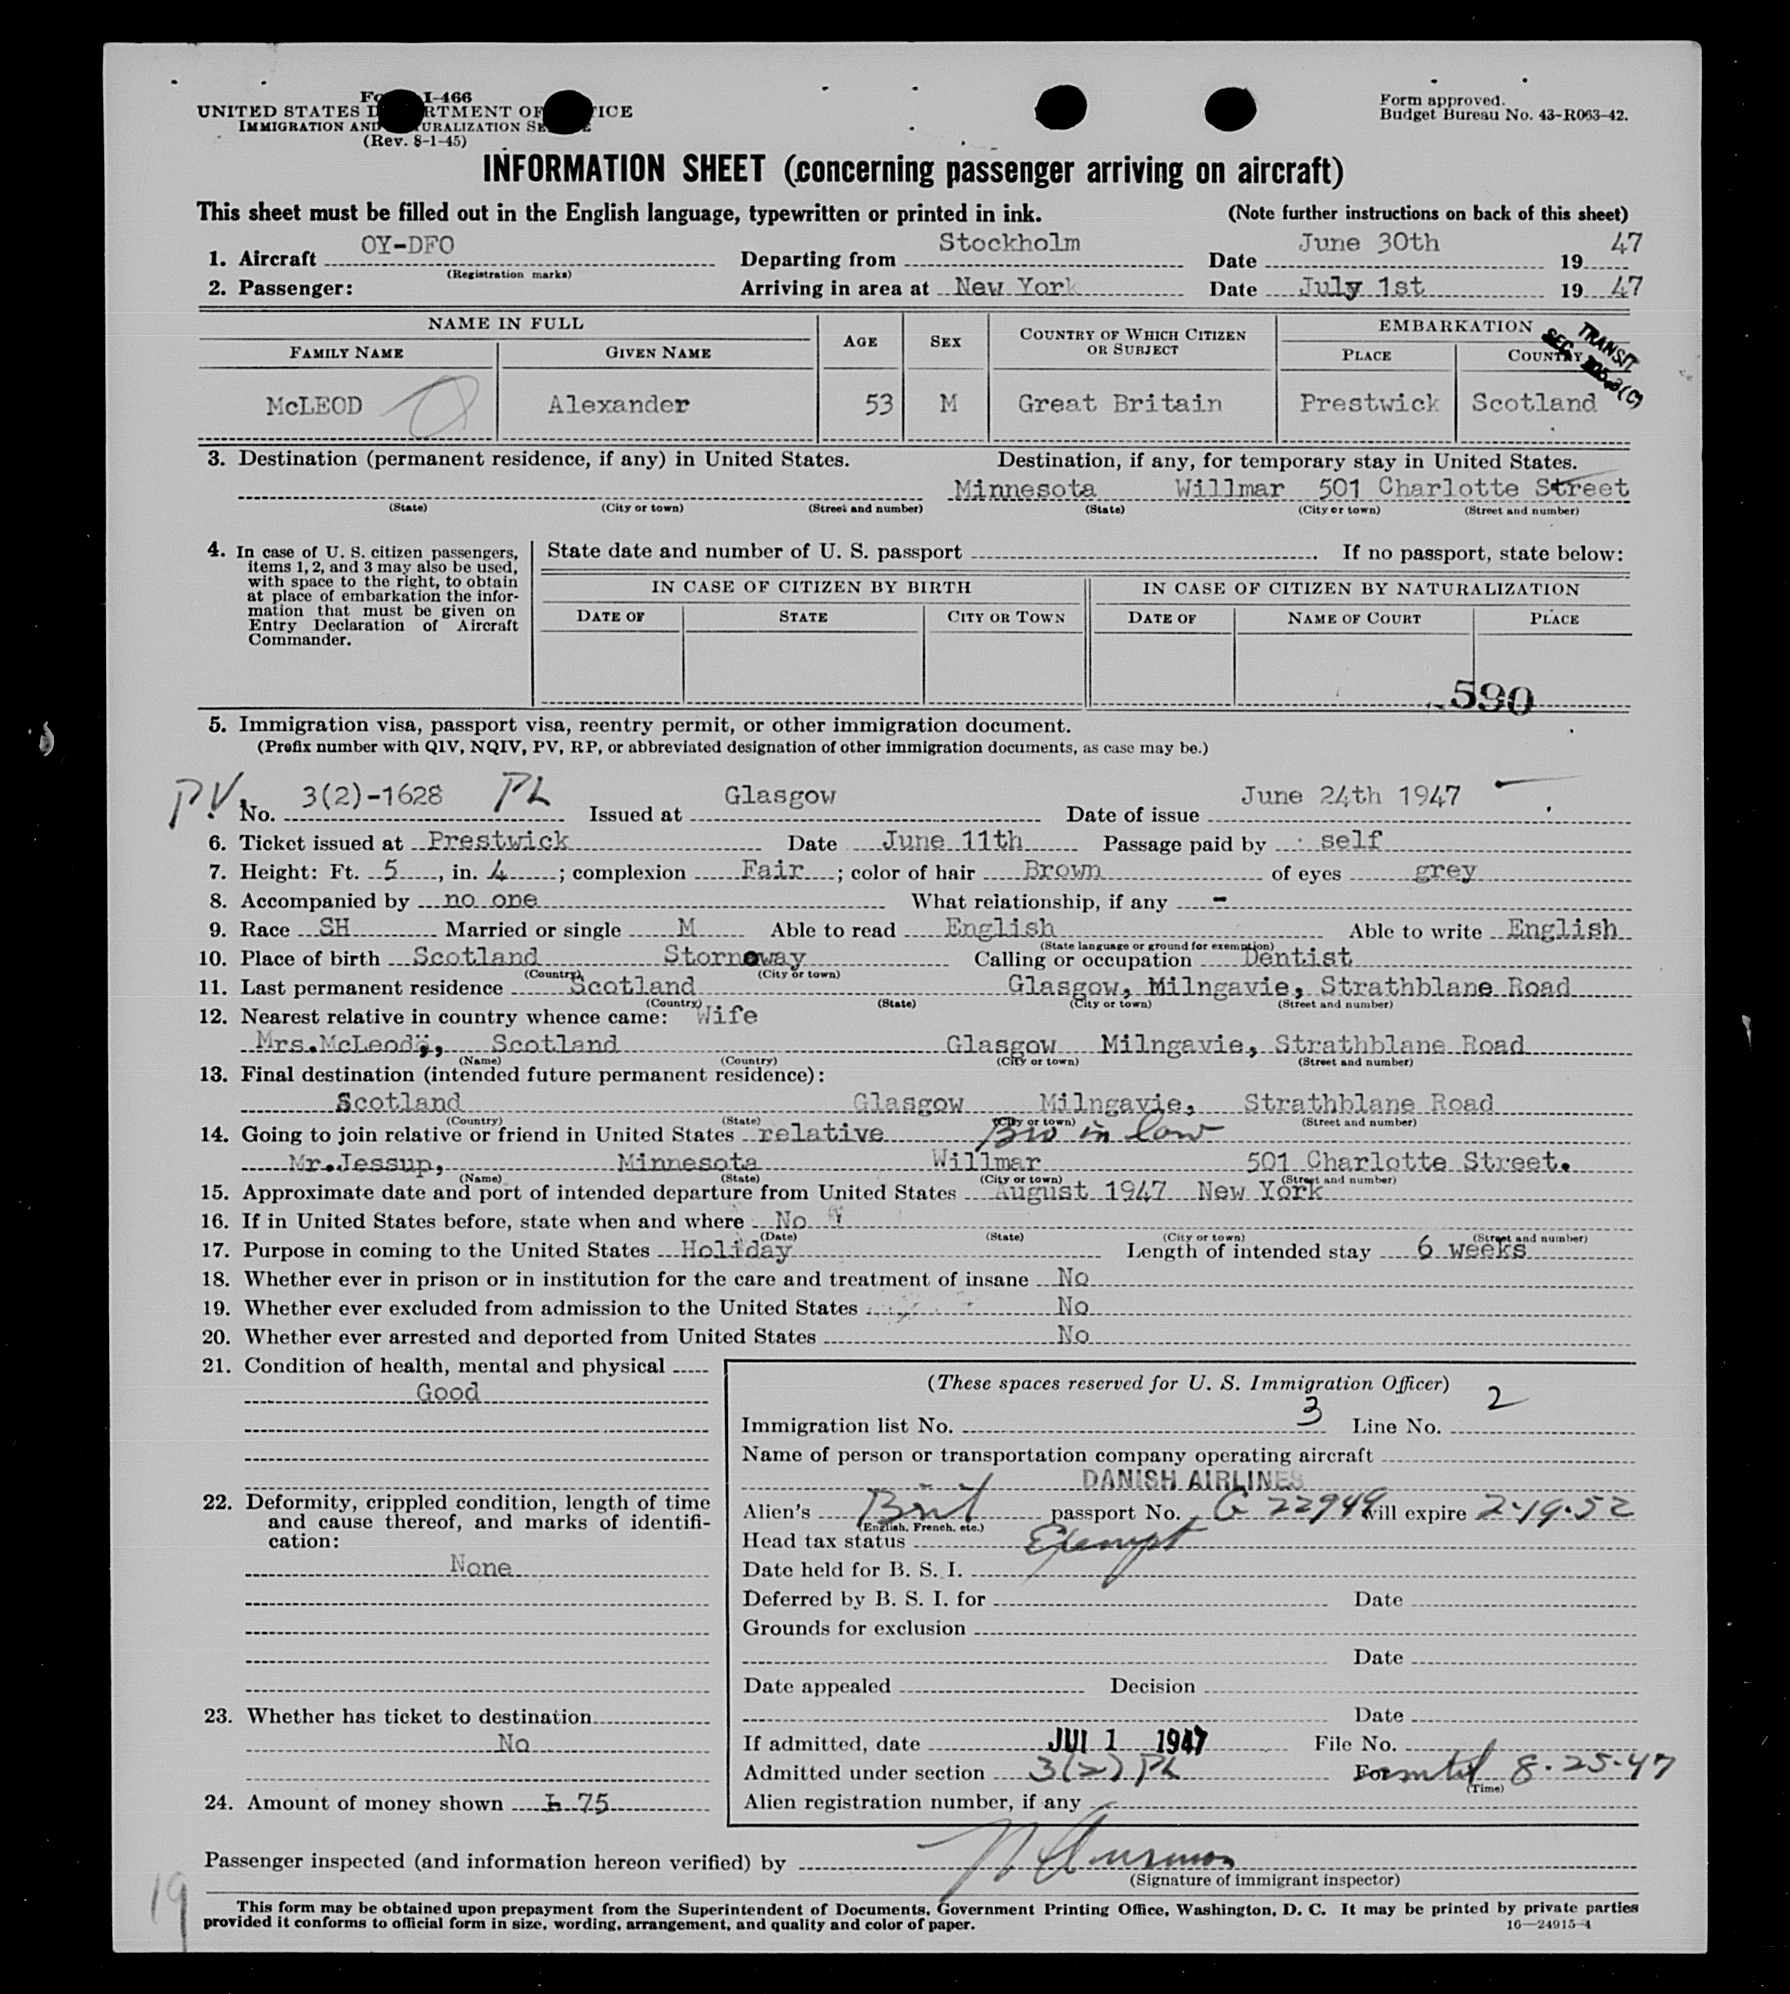 Form I-466
UNITED STATES DEPARTMENT OF JUSTICE
IMMIGRATION AND NATURALIZATION SERVICE
(Rev. 8-1-45)
Form approved.
Budget Bureau No. 43-R063-42.
INFORMATION SHEET (concerning passenger arriving on aircraft)
This sheet must be filled out in the English language, typewritten or printed in ink. (Note further instructions on back of this sheet)
1. Aircraft OY-DFO Departing from Stockholm Date June 30th 19 47
(Registration marks)
2. Passenger: Arriving in area at New York Date July 1st 19 47
NAME IN FULL AGE SEX COUNTRY OF WHICH CITIZEN OR SUBJECT EMBARKATION
FAMILY NAME GIVEN NAME PLACE COUNTRY
TRANSIT
McLEOD Alexander 53 M Great Britain Prestwick Scotland
3. Destination (permanent residence, if any) in United States. Destination, if any, for temporary stay in United States.
Minnesota Willmar 501 Charlotte Street
(State) (City or town) (Street and number) (State) (City or town) (Street and number)
4. In case of U. S. citizen passengers, items 1, 2, and 3 may also be used, with space to the right, to obtain at place of embarkation the information that must be given on Entry Declaration of Aircraft Commander.
State date and number of U. S. passport If no passport, state below:
IN CASE OF CITIZEN BY BIRTH IN CASE OF CITIZEN BY NATURALIZATION
DATE OF STATE CITY OR TOWN DATE OF NAME OF COURT PLACE
590
5. Immigration visa, passport visa, reentry permit, or other immigration document.
(Prefix number with QIV, NQIV, PV, RP, or abbreviated designation of other immigration documents, as case may be.)
PV. No. 3(2)-1628 PL Issued at Glasgow Date of issue June 24th 1947
6. Ticket issued at Prestwick Date June 11th Passage paid by self
7. Height: Ft. 5, in. 4; complexion Fair; color of hair Brown of eyes grey
8. Accompanied by no one What relationship, if any -
9. Race SH Married or single M Able to read English Able to write English
(State language or ground for exemption)
10. Place of birth Scotland Stornoway Calling or occupation Dentist
(Country) (City or town)
11. Last permanent residence Scotland Glasgow, Milngavie, Strathblane Road
(Country) (State) (City or town) (Street and number)
12. Nearest relative in country whence came: Wife
Mrs.McLeod, Scotland Glasgow Milngavie, Strathblane Road
(Name) (Country) (City or town) (Street and number)
13. Final destination (intended future permanent residence):
Scotland Glasgow Milngavie, Strathblane Road
(Country) (State) (City or town) (Street and number)
14. Going to join relative or friend in United States relative Bro in law
Mr.Jessup, Minnesota Willmar 501 Charlotte Street.
(Name) (State) (City or town) (Street and number)
15. Approximate date and port of intended departure from United States August 1947 New York
16. If in United States before, state when and where No
(Date) (State) (City or town) (Street and number)
17. Purpose in coming to the United States Holiday Length of intended stay 6 weeks
18. Whether ever in prison or in institution for the care and treatment of insane No
19. Whether ever excluded from admission to the United States No
20. Whether ever arrested and deported from United States No
21. Condition of health, mental and physical
Good
22. Deformity, crippled condition, length of time and cause thereof, and marks of identification:
None
23. Whether has ticket to destination
No
24. Amount of money shown L 75
(These spaces reserved for U. S. Immigration Officer)
Immigration list No. 3 Line No. 2
Name of person or transportation company operating aircraft
DANISH AIRLINES
Alien's Brit passport No. G 22949 will expire 2-19-52
(English, French, etc.)
Head tax status Exempt
Date held for B. S. I.
Deferred by B. S. I. for Date
Grounds for exclusion
Date
Date appealed Decision
Date
If admitted, date JUL 1 1947 File No.
Admitted under section 3(2) PL For until 8-25-47
(Time)
Alien registration number, if any
Passenger inspected (and information hereon verified) by
(Signature of immigrant inspector)
19
This form may be obtained upon prepayment from the Superintendent of Documents, Government Printing Office, Washington, D. C. It may be printed by private parties
provided it conforms to official form in size, wording, arrangement, and quality and color of paper. 16—24915-4